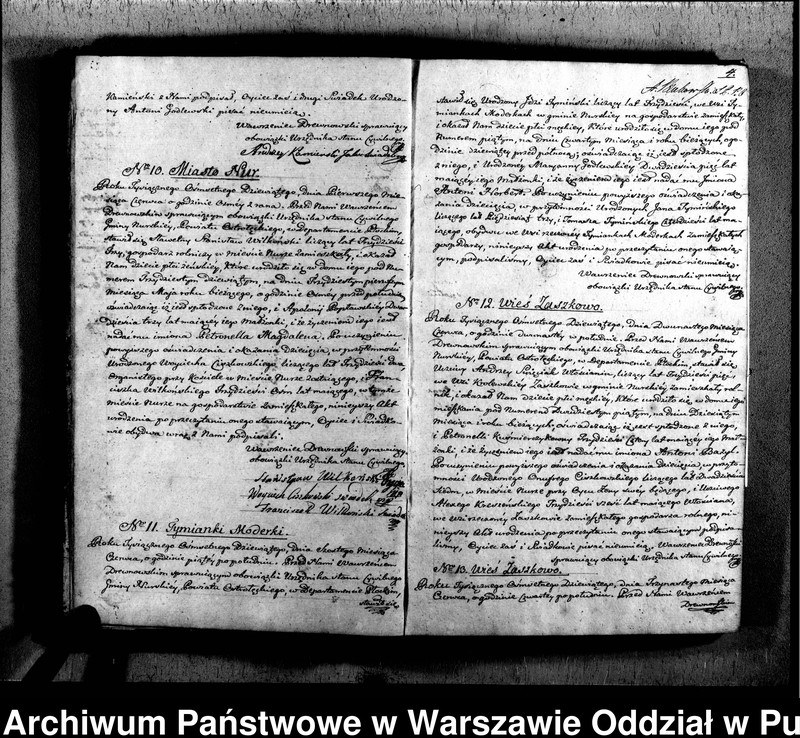 Kamieński z Nami podpisał, Oyciec zaś i drugi Świadek Urodzo-
ny Antoni Godlewski pisać nieumieią.
Wawrzeniec Drewnowski sprawuiący
obowiązki Urzędnika stanu Cywilnego.
Andrzy Kamienski Jako swiadek
Nro 10. Miasto Nur.
Roku Tysiącznego Osmsetnego Dziesiątego, dnia Pierwszego mie-
siąca Czerwca o godzinie Osmey z rana. Przed Nami Wawrzeńcem
Drewnowskim sprawuiącym obowiązki Urzędnika stanu Cywilnego
Gminy Nurskiey, Powiatu Ostrołęckiego, w Departamencie Płockim,
stawił się Sławetny Stanisław Wilkoński liczący lat Trzydzieści
Trzy, gospodarz rolniczy w mieście Nurze zamieszkały, i okazał
Nam dziecie płci żeńskiey, które urodziło się w domu iego pod Nu-
merem Trzydziestym dziewiątym, na dniu Trzydziestym pierwszym
Miesiąca Maja roku bieżącego, o godzinie Osmey przed południem
oświadczaiąc iż iest spłodzone z niego, i Apolonij Popławskiey Dwa-
dzieścia trzy lat maiącey iego małżonki, i że życzeniem iego iest
nadać mu imiona Petronella Magdalena. Po uczynieniu
powyższego oświadczenia i okazania Dziecięcia, w przytomności
Urodzonego Woyciecha Ciszkowskiego liczącego lat Trzydzieści dwa
Organistego przy Kościele w mieście Nurze zostaiącego, i Fran-
ciszka Wilkońskiego Trzydzieści Osm lat maiącego, w tymże
mieście Nurze na gospodarstwie zamieszkałego, ninieyszy Akt
urodzenia po przeczytaniu onego stawaiącym, Oyciec i Świadko-
wie obydwa wraz z Nami podpisali.
Wawrzeniec Drewnowski sprawuiący
obowiązki Urzędnika stanu Cywilnego
Stanisław Wilkoński
Woyciech Ciszkowski swiadek
Franciszek Wilkonski Swiadek
Nro 11. Tymianki Moderki.
Roku Tysiącznego Osmsetnego Dziesiątego, dnia Szostego miesiąca
Czerwca, o godzinie piątey po południu. Przed Nami Wawrzeńcem
Drewnowskim sprawuiącym obowiązki Urzędnika stanu Cywilnego
Gminy Nurskiey, Powiatu Ostrołęckiego, w Departamencie Płockim,
stawił się
4.
stawił się Urodzony Jozef Tymiński liczący lat Trzydzieści, we Wsi Ty-
miankach Moderkach w gminie Nurskiey na gospodarstwie zamieszkały,
i okazał Nam dziecie płci męskiey, które urodziło się w domu iego pod
Numerem piątym, na dniu Czwartym Miesiąca i roku bieżących, o go-
dzinie dziewiątey przed północą, oświadczaiąc iż iest spłodzone
z niego, i Urodzoney Maryanny Godlewskiey Dwadzieścia pięć lat
maiącey iego Małżonki, i że życzeniem iego iest nadać mu Imiona
Antoni Norbert. Po uczynieniu powyższego oświadczenia i oka-
zania dziecięcia, w przytomności Urodzonych Jana Tymińskiego
liczącego lat Pięćdziesiąt trzy, i Tomasza Tymińskiego Czterdzieści lat ma-
iącego, obydwu we Wsi rzeczoney Tymiankach Moderkach zamieszkałych
gospodarzy, ninieyszy Akt urodzenia po przeczytaniu onego stawaią-
cym, podpisaliśmy, Oyciec zaś i Świadkowie pisać nieumieią.
Wawrzeniec Drewnowski sprawuiący
obowiązki Urzędnika stanu Cywilnego
Nro 12. Wieś Zaszkowo.
Roku Tysiącznego Osmsetnego Dziesiątego, dnia Dwunastego miesiąca
Czerwca, o godzinie dwunastey w południe. Przed Nami Wawrzeńcem
Drewnowskim sprawuiącym obowiązki Urzędnika stanu Cywilnego Gminy
Nurskiey, Powiatu Ostrołęckiego, w Departamencie Płockim, stawił się
Uczciwy Andrzey Włościanin, liczący lat Trzydzieści pięć,
we Wsi Królewskiey Zaszkowie w gminie Nurskiey zamieszkały rol-
nik, i okazał Nam Dziecie płci męskiey, które urodziło się w domu iego
pod Numerem Dwudziestym piątym, na dniu Dziesiątym
Miesiąca i roku bieżących, oświadczaiąc iż iest spłodzone z niego,
i Petronelli Kuśmierczykowny Trzydzieści Cztery lat maiącey iego Mał-
żonki, i że życzeniem iego iest nadać mu imiona Antoni Bazyli.
Po uczynieniu powyższego oświadczenia i okazania Dziecięcia w przyto-
mności Urodzonego Onufrego Ciszkowskiego liczącego lat Dwadzieścia
w mieście Nurze przy Oycu swym będącego, i Uczciwego
Trzydzieści sześć lat maiącego Włościanina
we Wsi rzeczoney Zaszkowie zamieszkałego gospodarza rolnego, ni-
nieyszy Akt urodzenia po przeczytaniu onego stawaiącym podpisa-
liśmy, Oyciec zaś i Świadkowie pisać nieumieią. Wawrzeniec Drewnowski
sprawuiący obowiązki Urzędnika stanu Cywilnego
Nro 13. Wieś Zaszkowo.
Roku Tysiącznego Osmsetnego Dziesiątego, dnia Trzynastego miesiąca
Czerwca, o godzinie Czwartey po południu. Przed Nami Wawrzeńcem
Drewnowskim
Archiwum Państwowe w Warszawie Oddział w Pu